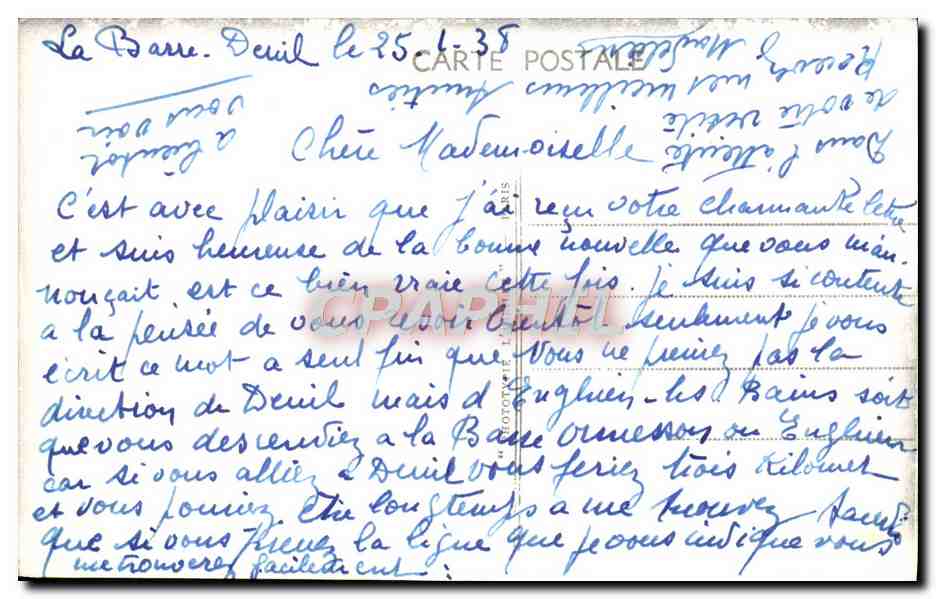 La Barre-Deuil le 25-1-38
CARTE POSTALE
Chère Mademoiselle
C'est avec plaisir que j'ai reçu votre charmante lettre
et suis heureuse de la bonne nouvelle que vous m'an-
nonçait. est ce bien vraie cette fois. je suis si contente
a la pensée de vous revoir bientôt. seulement je vous
écrit ce mot a seul fin que vous ne preniez pas la
direction de Deuil mais d'Enghien-les Bains soit
que vous descendiez a la Barre Ormesson ou Enghien
car si vous alliez a Deuil vous feriez trois Kilomet
et vous pourriez être longtemps a me trouvez tandis
que si vous prenez la ligne que je vous indique vous
me trouverez facilement.
Dans l'attente
de votre visite
Recevez mes meilleurs Amitiés
a bientôt
vous voir
CPAPHIL
PARIS
PHOTOTYPIE